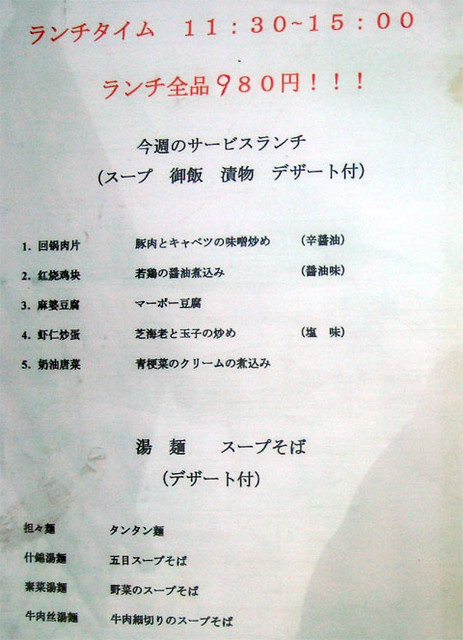 ランチタイム　１１：３０~１５：００
ランチ全品９８０円！！！
今週のサービスランチ
（スープ　御飯　漬物　デザート付）
1．回锅肉片　豚肉とキャベツの味噌炒め　（辛醤油）
2．红烧鸡块　若鶏の醤油煮込み　（醤油味）
3．麻婆豆腐　マーボー豆腐
4．虾仁炒蛋　芝海老と玉子の炒め　（塩　味）
5．奶油唐菜　青梗菜のクリームの煮込み
湯　麺　　スープそば
（デザート付）
担々麺　タンタン麺
什錦湯麺　五目スープそば
素菜湯麺　野菜のスープそば
牛肉丝湯麺　牛肉細切りのスープそば